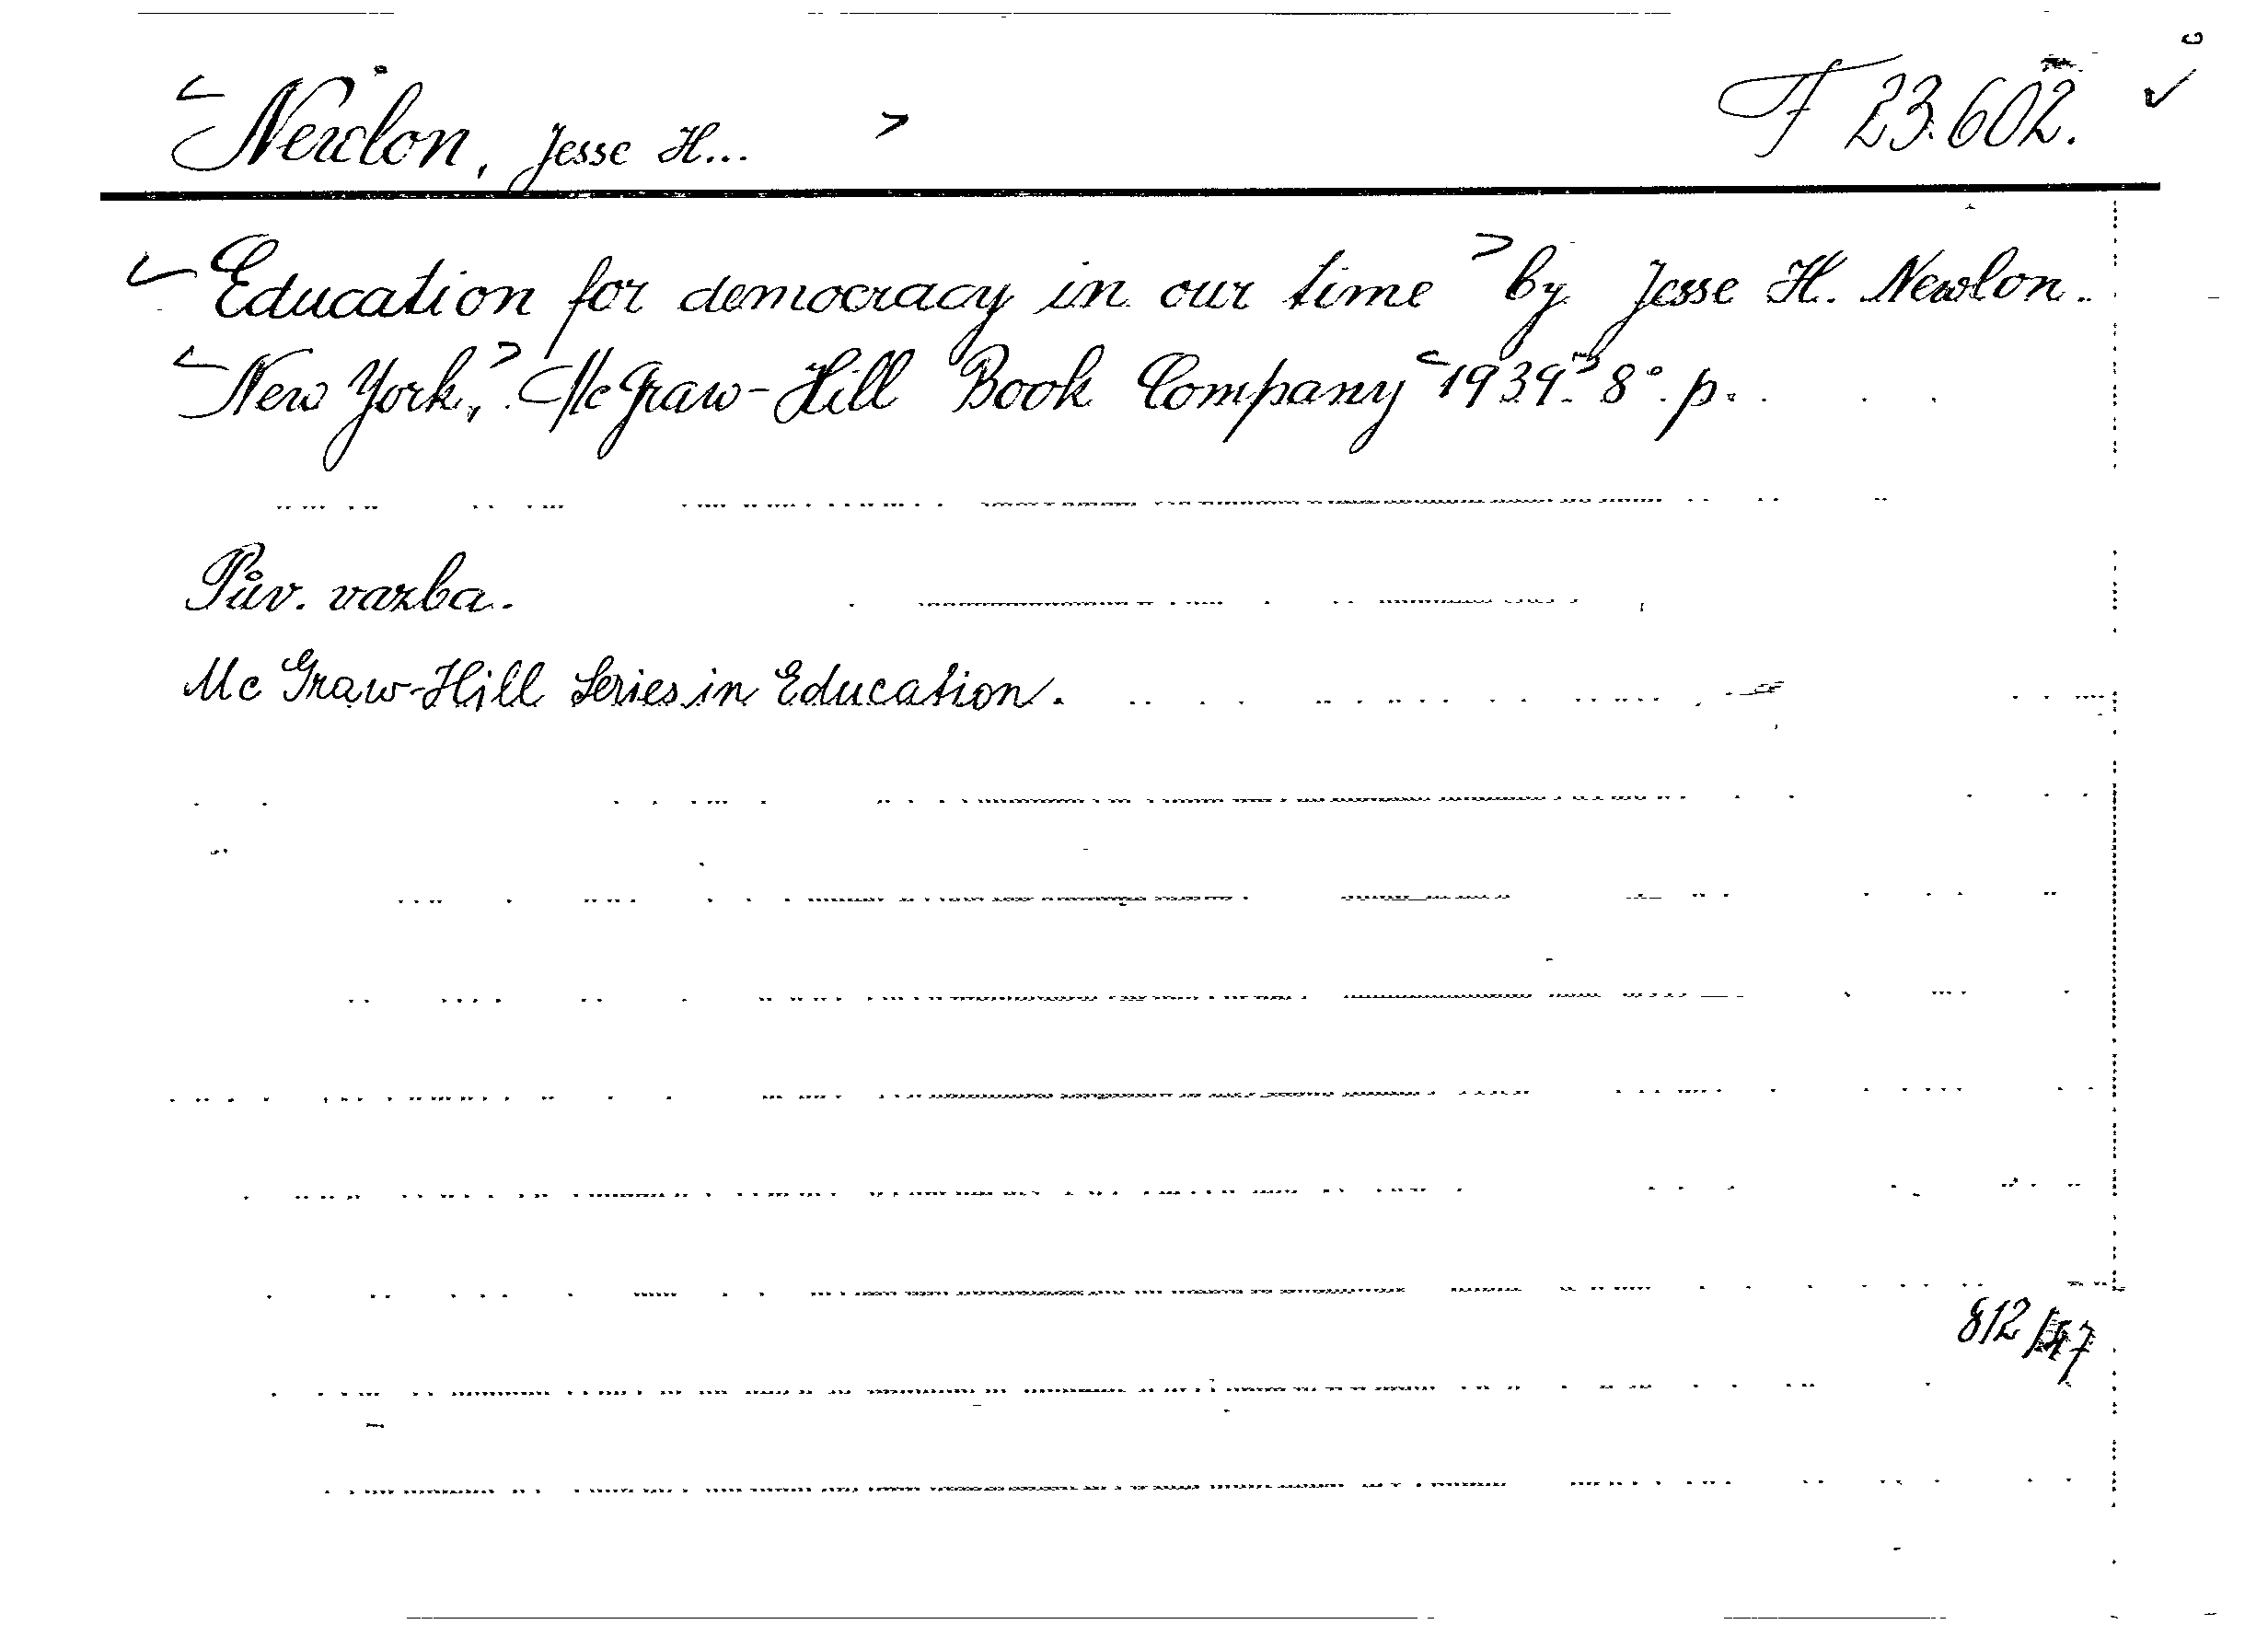 <Newlon, Jesse H... > F 23.602. ✓
<Education for democracy in our time> by Jesse H. Newlon.
<New York,> Mc Graw-Hill Book Company <1939.> 8°. p.
Pův. vazba.
Mc Graw-Hill Series in Education.
812/47